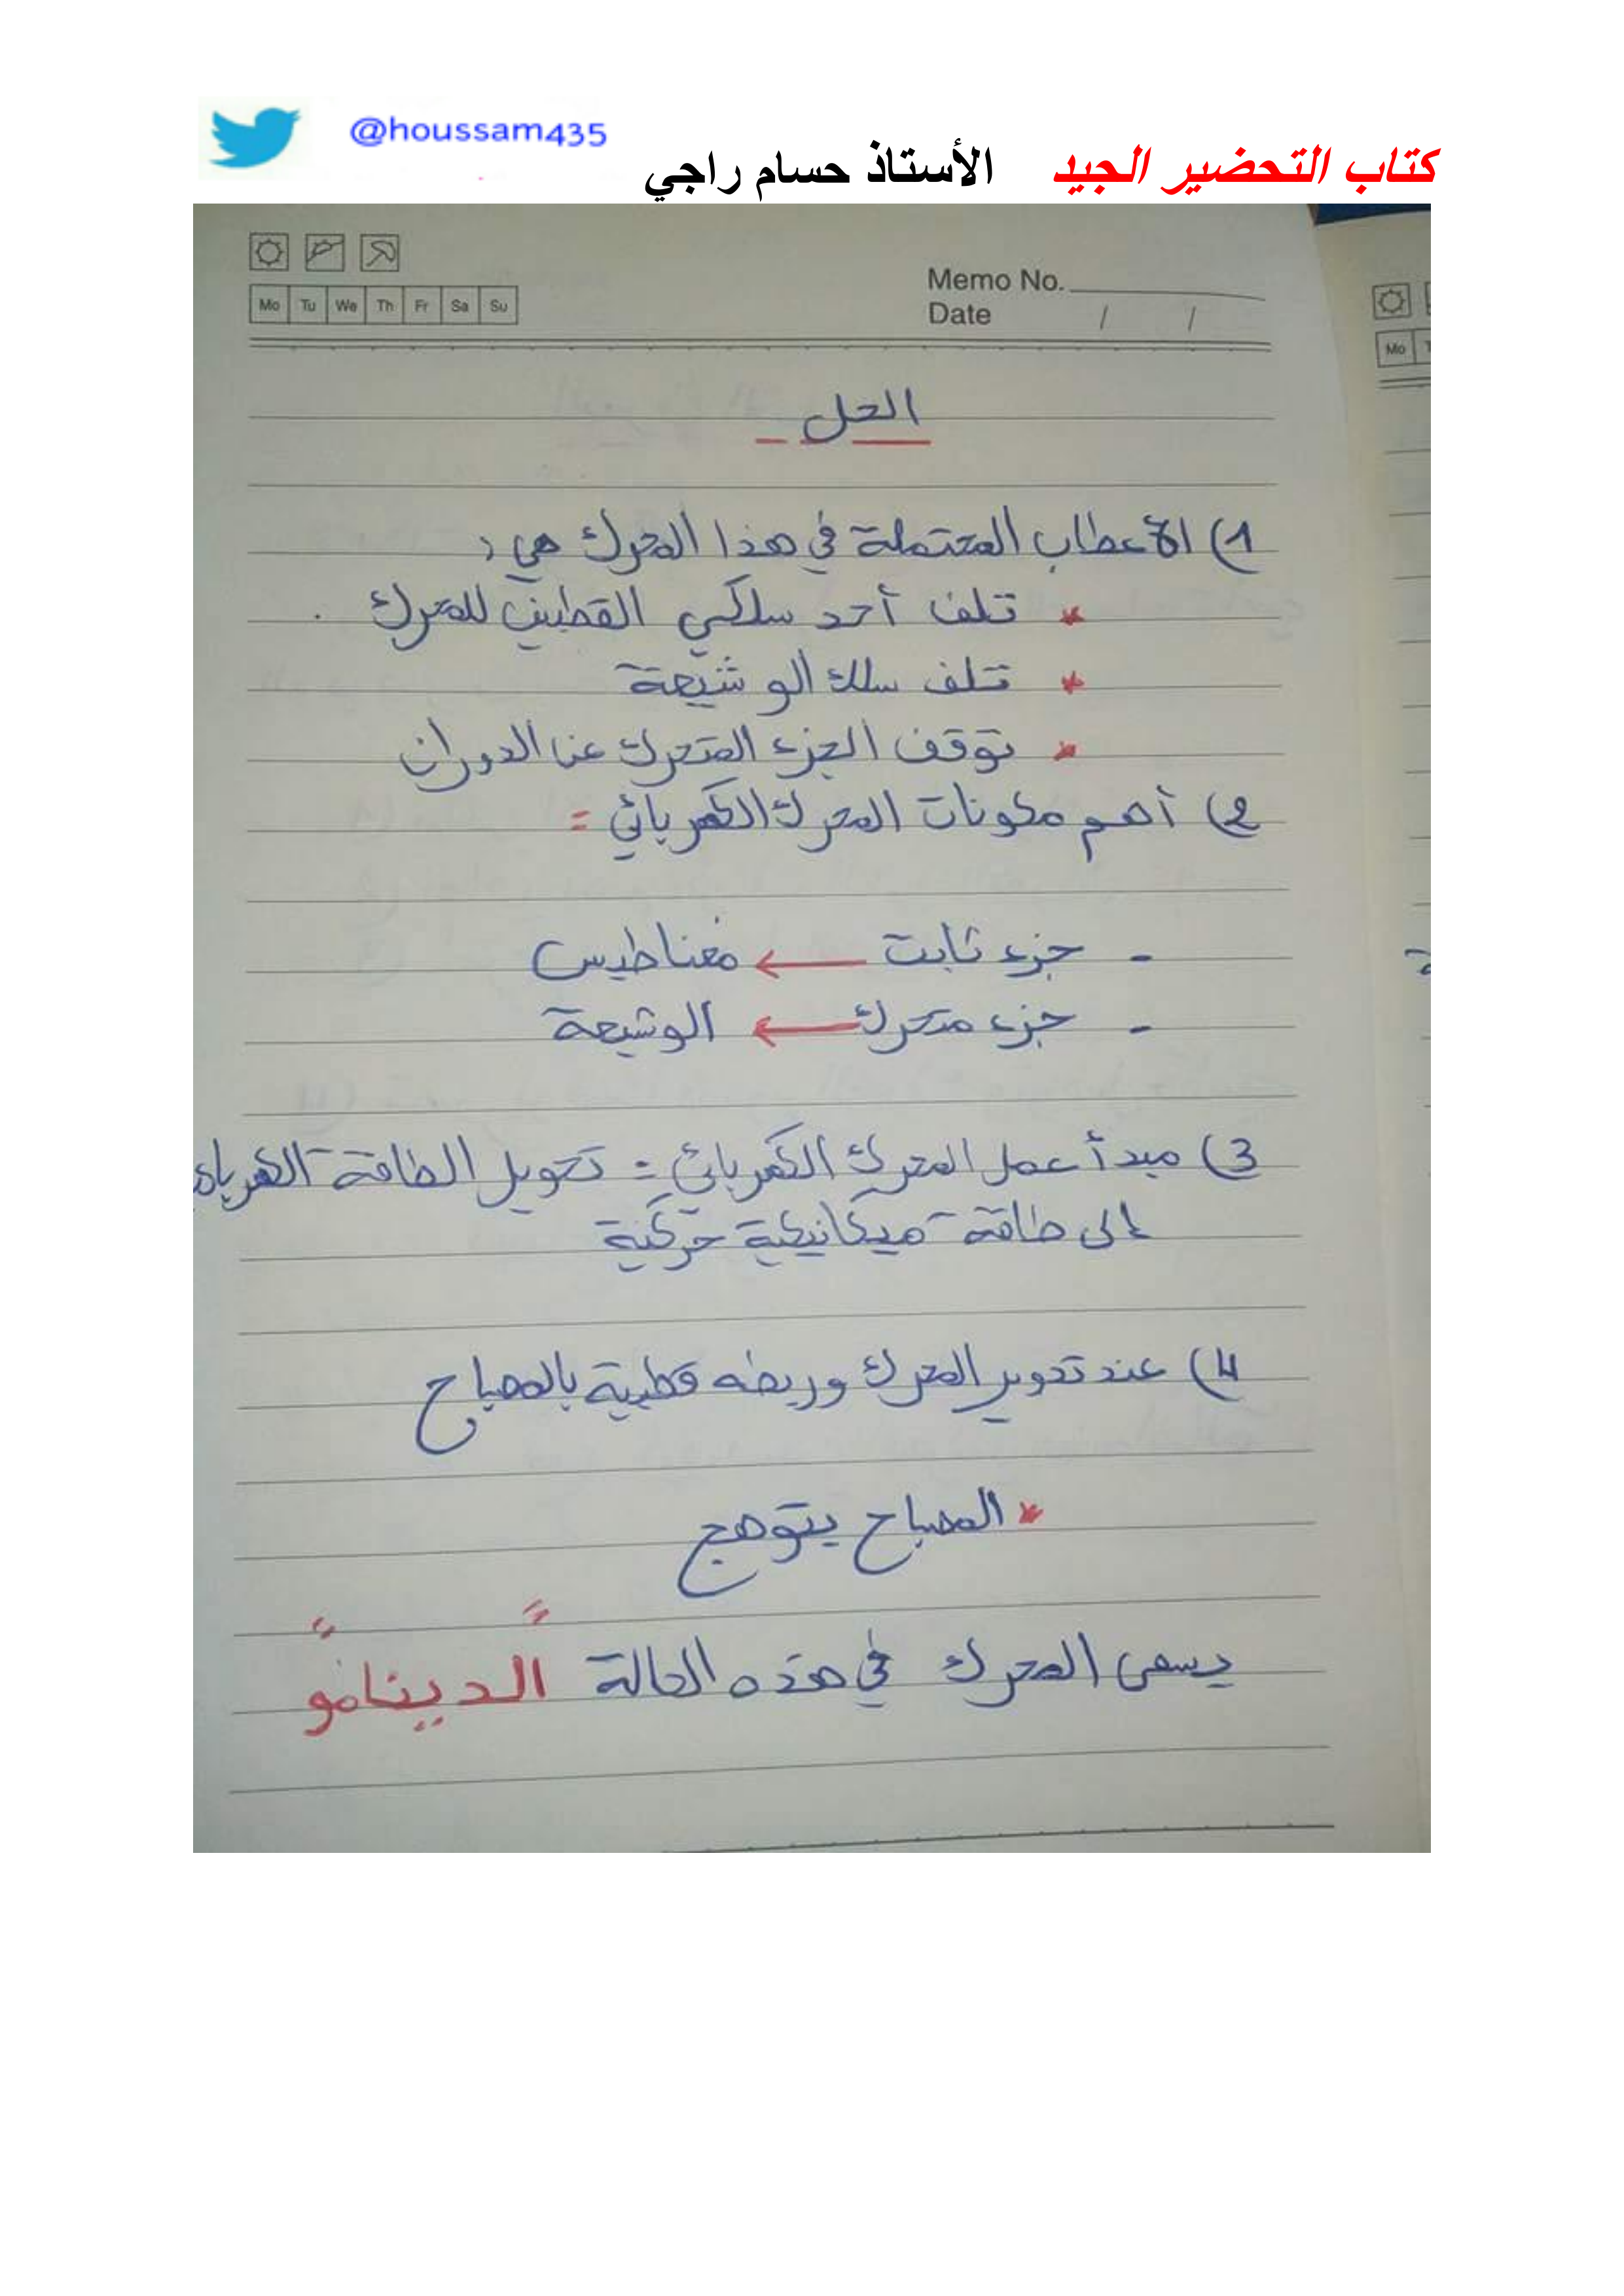 @houssam435
كتاب التحضير الجيد الأستاذ حسام راجي
Memo No.
Mo Tu We Th Fr Sa Su
Date / /
Mo
الحل
1) الأعطاب المحتملة في هذا المحرك هي :
* تلف أحد سلكي القطبين للمحرك .
* تلف سلك الوشيعة
* توقف الجزء المتحرك عن الدوران
2) أهم مكونات المحرك الكهربائي =
- جزء ثابت ← مغناطيس
- جزء متحرك ← الوشيعة
3) مبدأ عمل المحرك الكهربائي = تحويل الطاقة
إلى طاقة ميكانيكية حركية
4) عند تدوير المحرك وربطه قطبية بالمصباح
* المصباح يتوهج
يسمى المحرك في هذه الحالة "الدينامو"